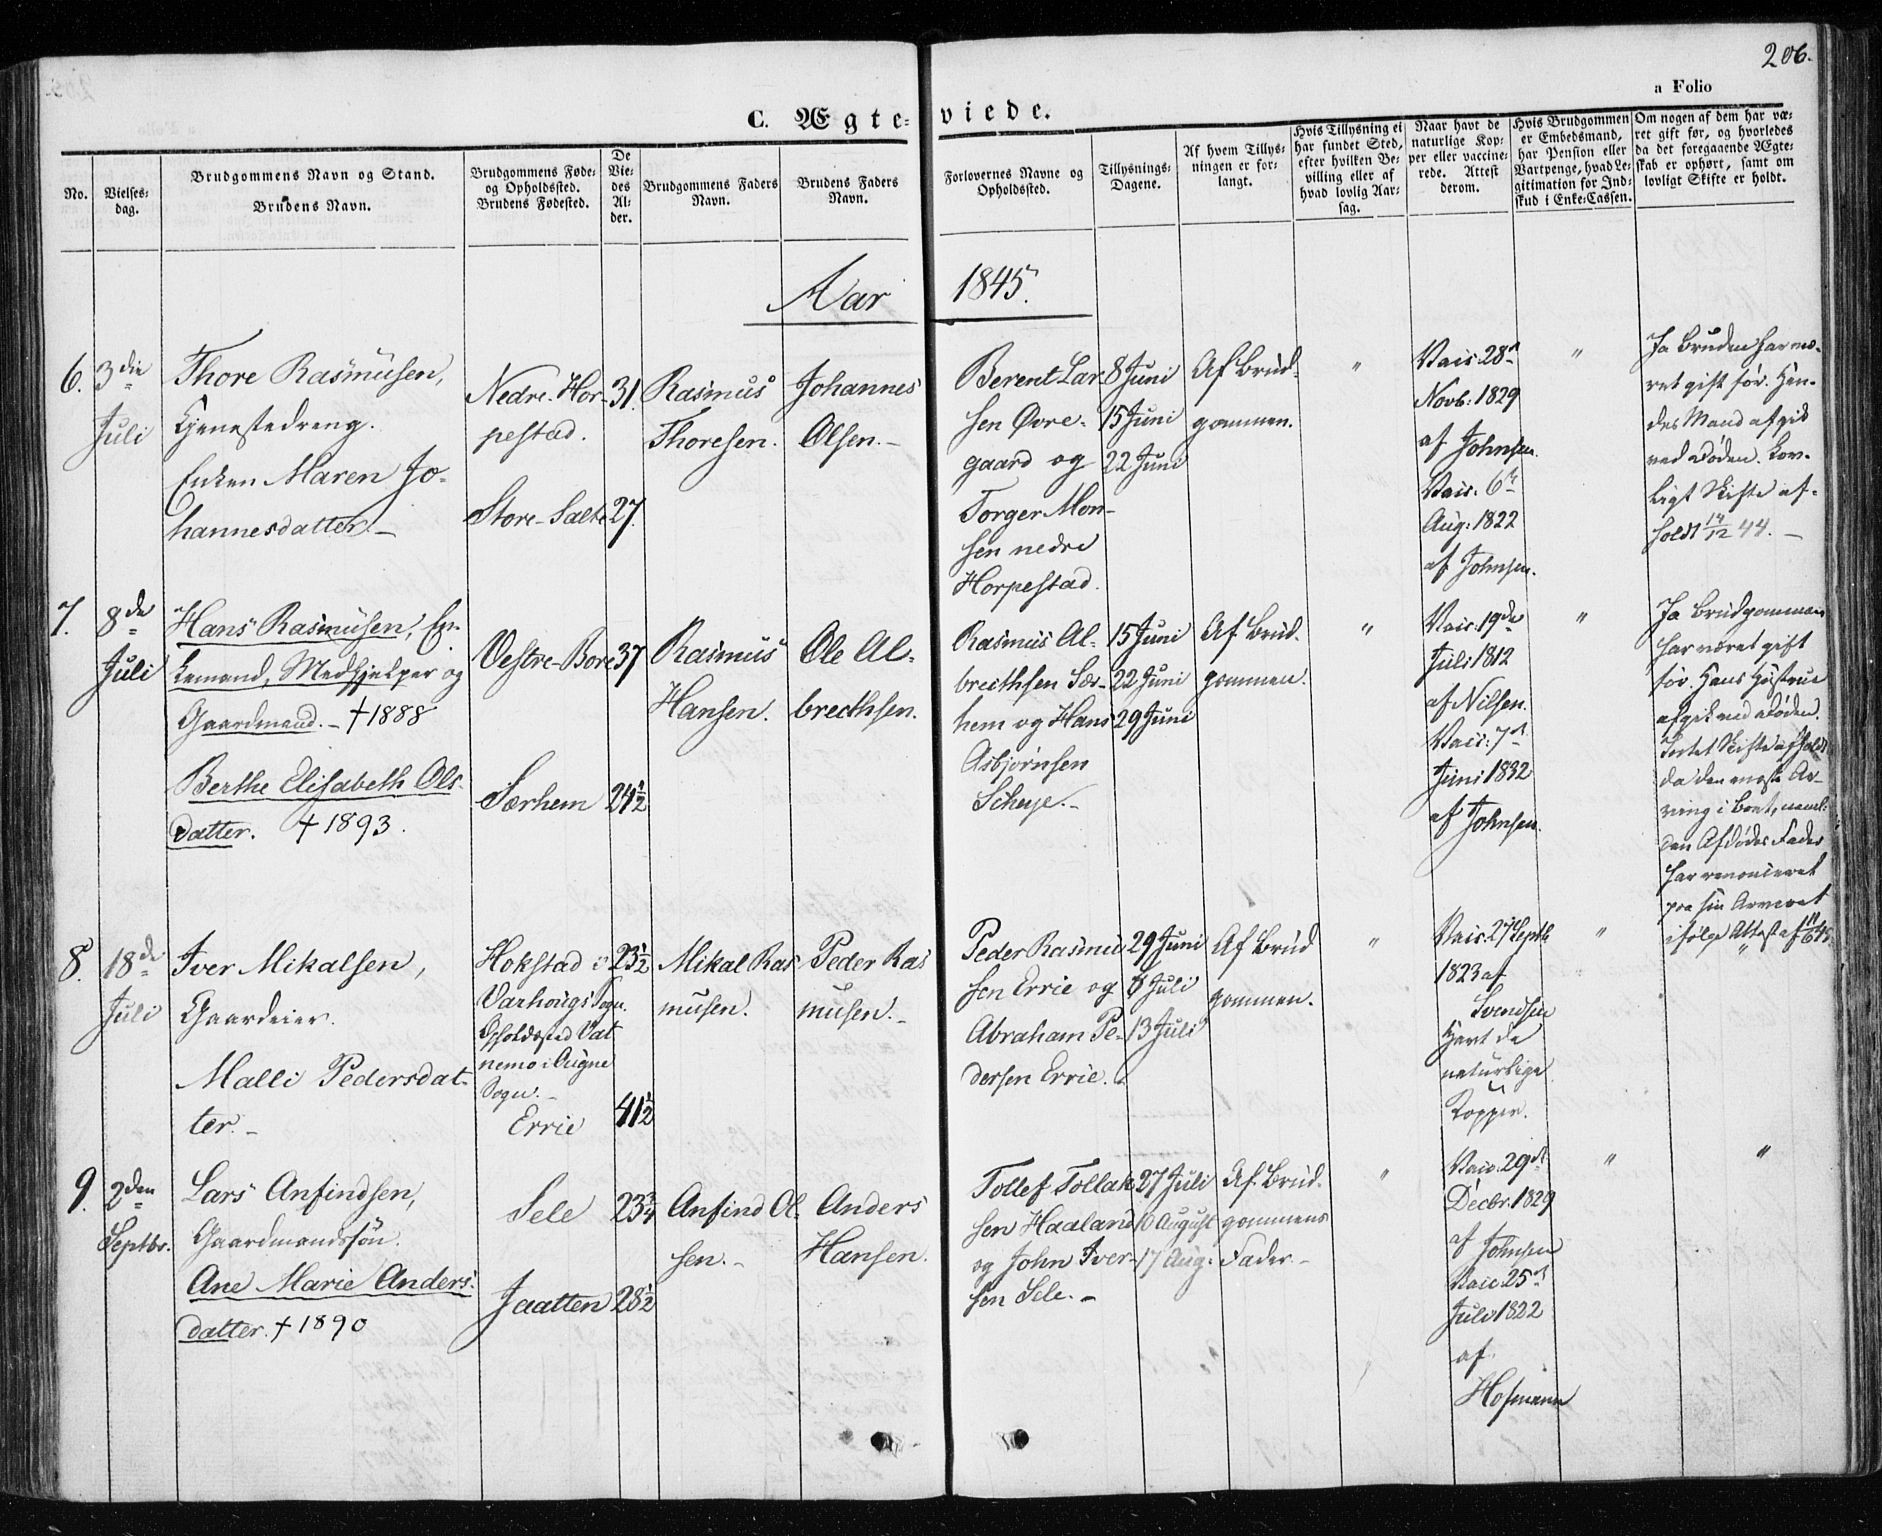 206.
a Folio
C. Ægteviede.
No.
Vielses-
dag.
Brudgommens Navn og Stand.
Brudens Navn.
Brudgommens Føde-
og Opholdssted.
Brudens Fødested.
De
Vie-
des
Al-
der.
Brudgommens Faders
Navn.
Brudens Faders
Navn.
Forlovernes Navne og
Opholdssted.
Tillysnings-
Dagene.
Af hvem Tillys-
ningen er for-
langt.
Hvis Tillysning ei
har fundet Sted,
efter hvilken Be-
villing eller af
hvad lovlig Aar-
sag.
Naar havt de
naturlige Kop-
per eller vaccine-
rede. Attest
derom.
Hvis Brudgommen
er Embedsmand,
har Pension eller
Vartpenge, hvad Le-
gitimation for Ind-
skud i Enke-Cassen.
Om nogen af dem har væ-
ret gift før, og hvorledes
da det foregaaende Ægte-
skab er ophørt, samt om
lovligt Skifte er holdt.
Aar 1845.
6.
3die
Juli
Thore Rasmusen,
Tjenestedreng.
Enken Maren Jo-
hannesdatter.-
Nedre-Hor-
pestad.
Store-Salte
31.
27.
Rasmus
Thoresen.
Johannes
Olsen.-
Berent Lar-
sen Øvre-
gaard og
Torger Mon-
sen nedre
Horpestad.
8 Juni
15 Juni
22 Juni
Af Brud-
gommen.
"
Vacc: 28n
Novb: 1829
af Johnsen.
Vacc. 6te
Aug: 1822
af Johnsen.
"
Ja Bruden har væ-
ret gift før. Hen-
des Mand afgik
ved Døden. Lov-
ligt Skifte af-
holdt 14/12 44.-
7.
8de
Juli
Hans Rasmusen, En-
kemand, Medhjelper og
Gaardmand.- †1888
Berthe Elisabeth Ols-
datter. †1893.
Vestre-Bore
Særhem
37
24½
Rasmus
Hansen.
Ole Al-
brecthsen.
Rasmus Al-
brecthsen Sær-
hem og Hans
Asbjørnsen
Scheje.-
15 Juni
22 Juni
29 Juni
Af Brud-
gommen.
"
Vacc. 19de
Juli 1812
af Nilsen.
Vacc: 7de
Juni 1832
af Johnsen.
"
Ja Brudgommen
har været gift
før. Hans Hustrue
afgik ved Døden.
Intet Skifte afholdt
da den eneste Ar-
ving i Boet, neml:
den Afdødes Fader
har renonceret
paa sin Arveret
ifølge Attest af 11/6 45.
8.
18de
Juli
Iver Mikalsen,
Gaardeier.
Malli Pedersdat-
ter.-
Hokstad i
Varhougs Sogn.
Opholdssted Vat-
nemo i Ougne
Sogn.-
Errie
23½
41½
Mikal Ras-
musen.
Peder Ras-
musen.-
Peder Rasmu-
sen Errie og
Abraham Pe-
dersen Errie.
29 Juni
6 Juli
13 Juli
Af Brud
gommen.
"
Vacc. 27 Septb
1823 af
Svendsen
Havt de
naturlige
Kopper.
"
"
9.
2den
Septbr.
Lars Anfindsen,
Gaardmandssøn.
Ane Marie Anders-
datter. †1890
Sele
Jaatten
23¾
28½
Anfind Ol-
sen.-
Anders
Hansen.
Tollef Tollak-
sen Haaland
og John Iver-
sen Sele.-
27 Juli
10 August
17 Aug:
Af Brud-
gommens
Fader.-
"
Vacc. 29de
Decbr. 1829
af Johnsen
Vacc. 25de
Juli 1822
af
Hofmann
"
"